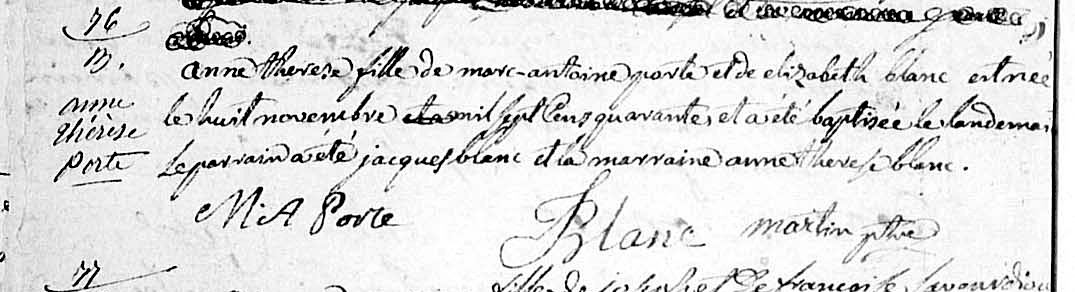 76
B.
anne therese fille de marc-antoine porte et de elizabeth blanc est née
anne
thérèse
porte
le huit novembre mil sept cens quarante et a été baptisée le landemain
le parrain a été jacques blanc et la marraine anne therese blanc.
M. A Porte
Blanc
martin ptre
77
fille de joseph et de françoise